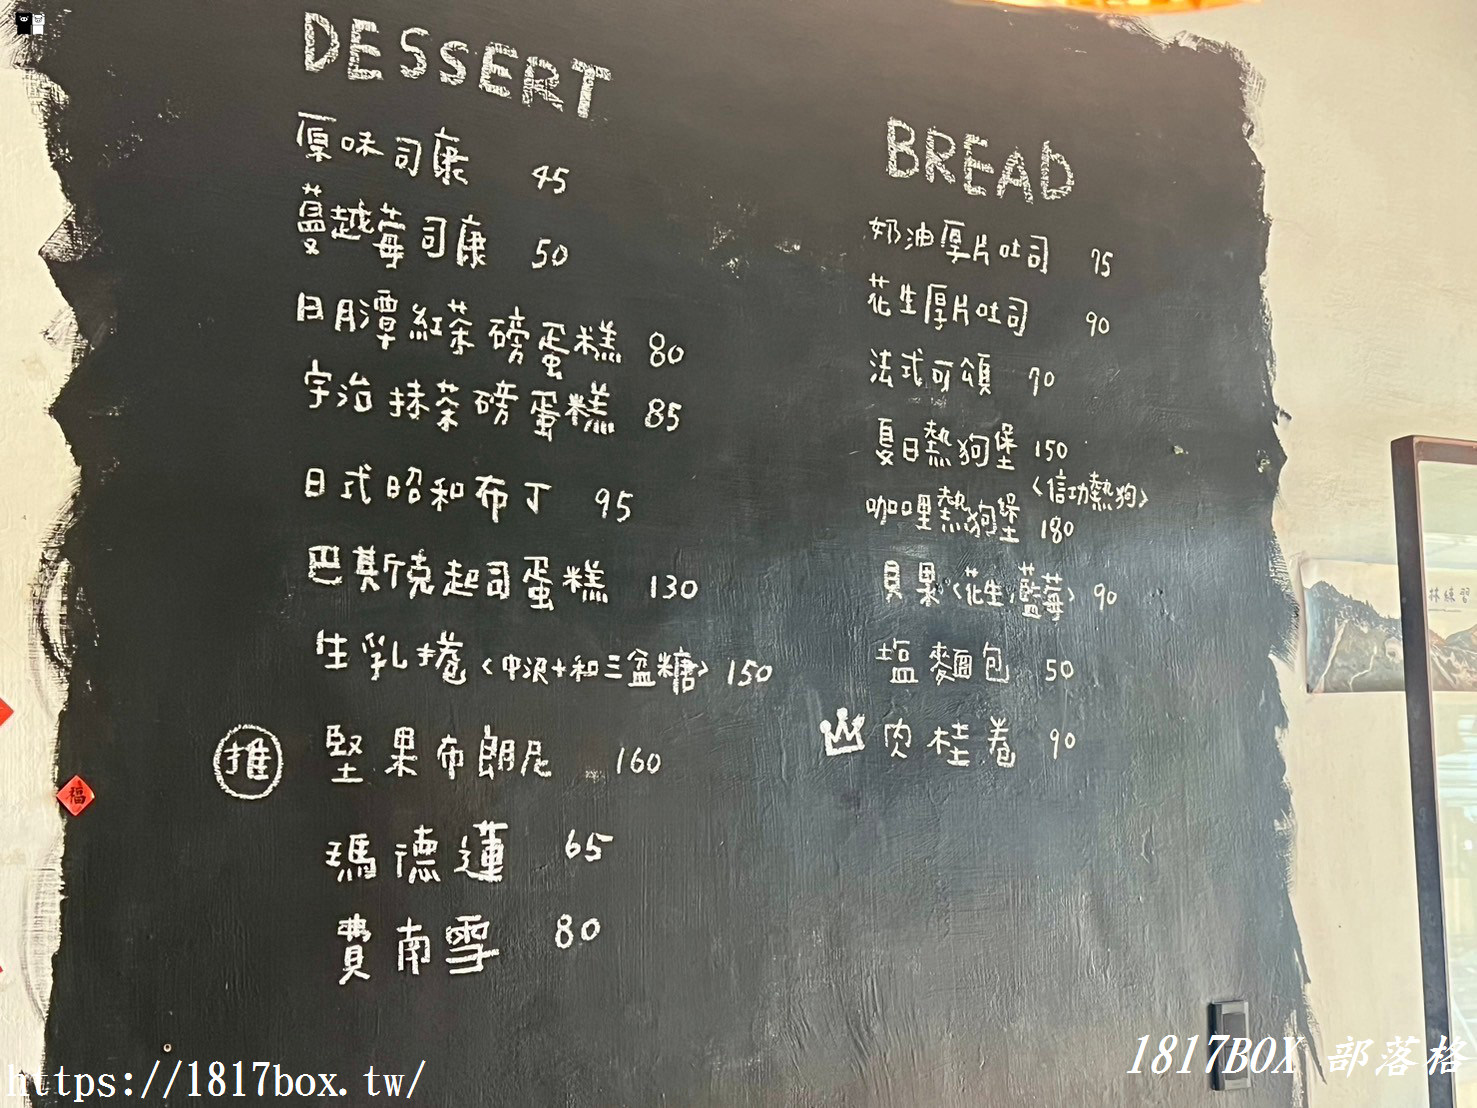 DESSERT
原味司康 45
蔓越莓司康 50
日月潭紅茶磅蛋糕 80
宇治抹茶磅蛋糕 85
日式昭和布丁 95
巴斯克起司蛋糕 130
生乳捲〈中沢+和三盆糖〉 150
推 堅果布朗尼 160
瑪德蓮 65
費南雪 80
BREAD
奶油厚片吐司 75
花生厚片吐司 90
法式可頌 70
夏日熱狗堡 150
〈信功熱狗〉
咖哩熱狗堡 180
貝果〈花生/藍莓〉 90
塩麵包 50
肉桂卷 90
福
林練習
https://1817box.tw/
1817BOX 部落格